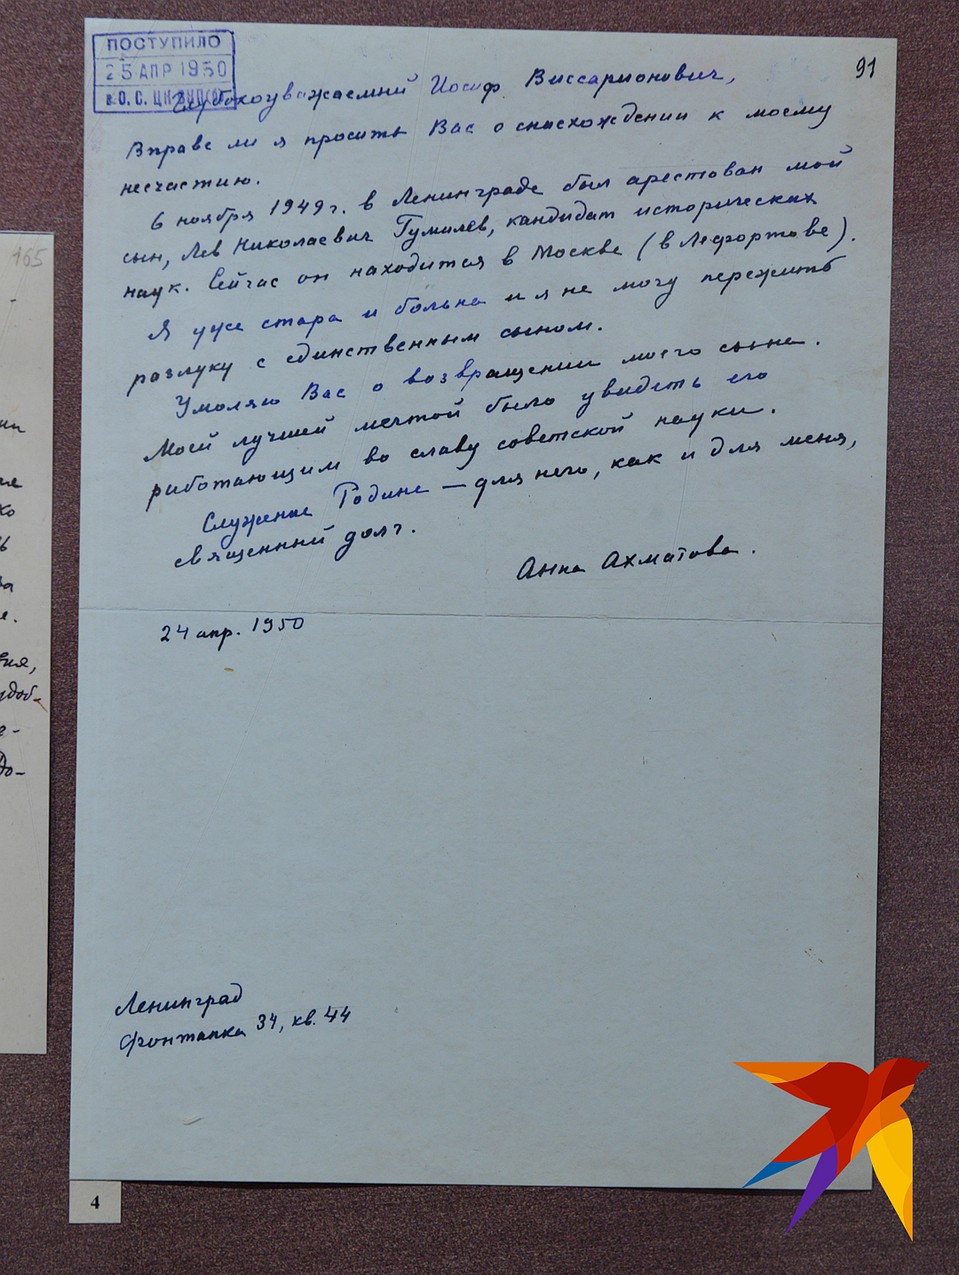 ПОСТУПИЛО
25 АПР 1950
в О. С. ЦК ВКП(б)
91
Глубокоуважаемый Иосиф Виссарионович,
Вправе ли я просить Вас о снисхождении к моему
несчастию.
6 ноября 1949 г. в Ленинграде был арестован мой
сын, Лев Николаевич Гумилев, кандидат исторических
наук. Сейчас он находится в Москве (в Лефортове).
Я уже стара и больна и я не могу пережить
разлуку с единственным сыном.
Умоляю Вас о возвращении моего сына.
Моей лучшей мечтой было увидеть его
работающим во славу советской науки.
Служение Родине — для него, как и для меня,
священный долг.
Анна Ахматова.
24 апр. 1950
Ленинград
Фонтанка 34, кв. 44
4
165